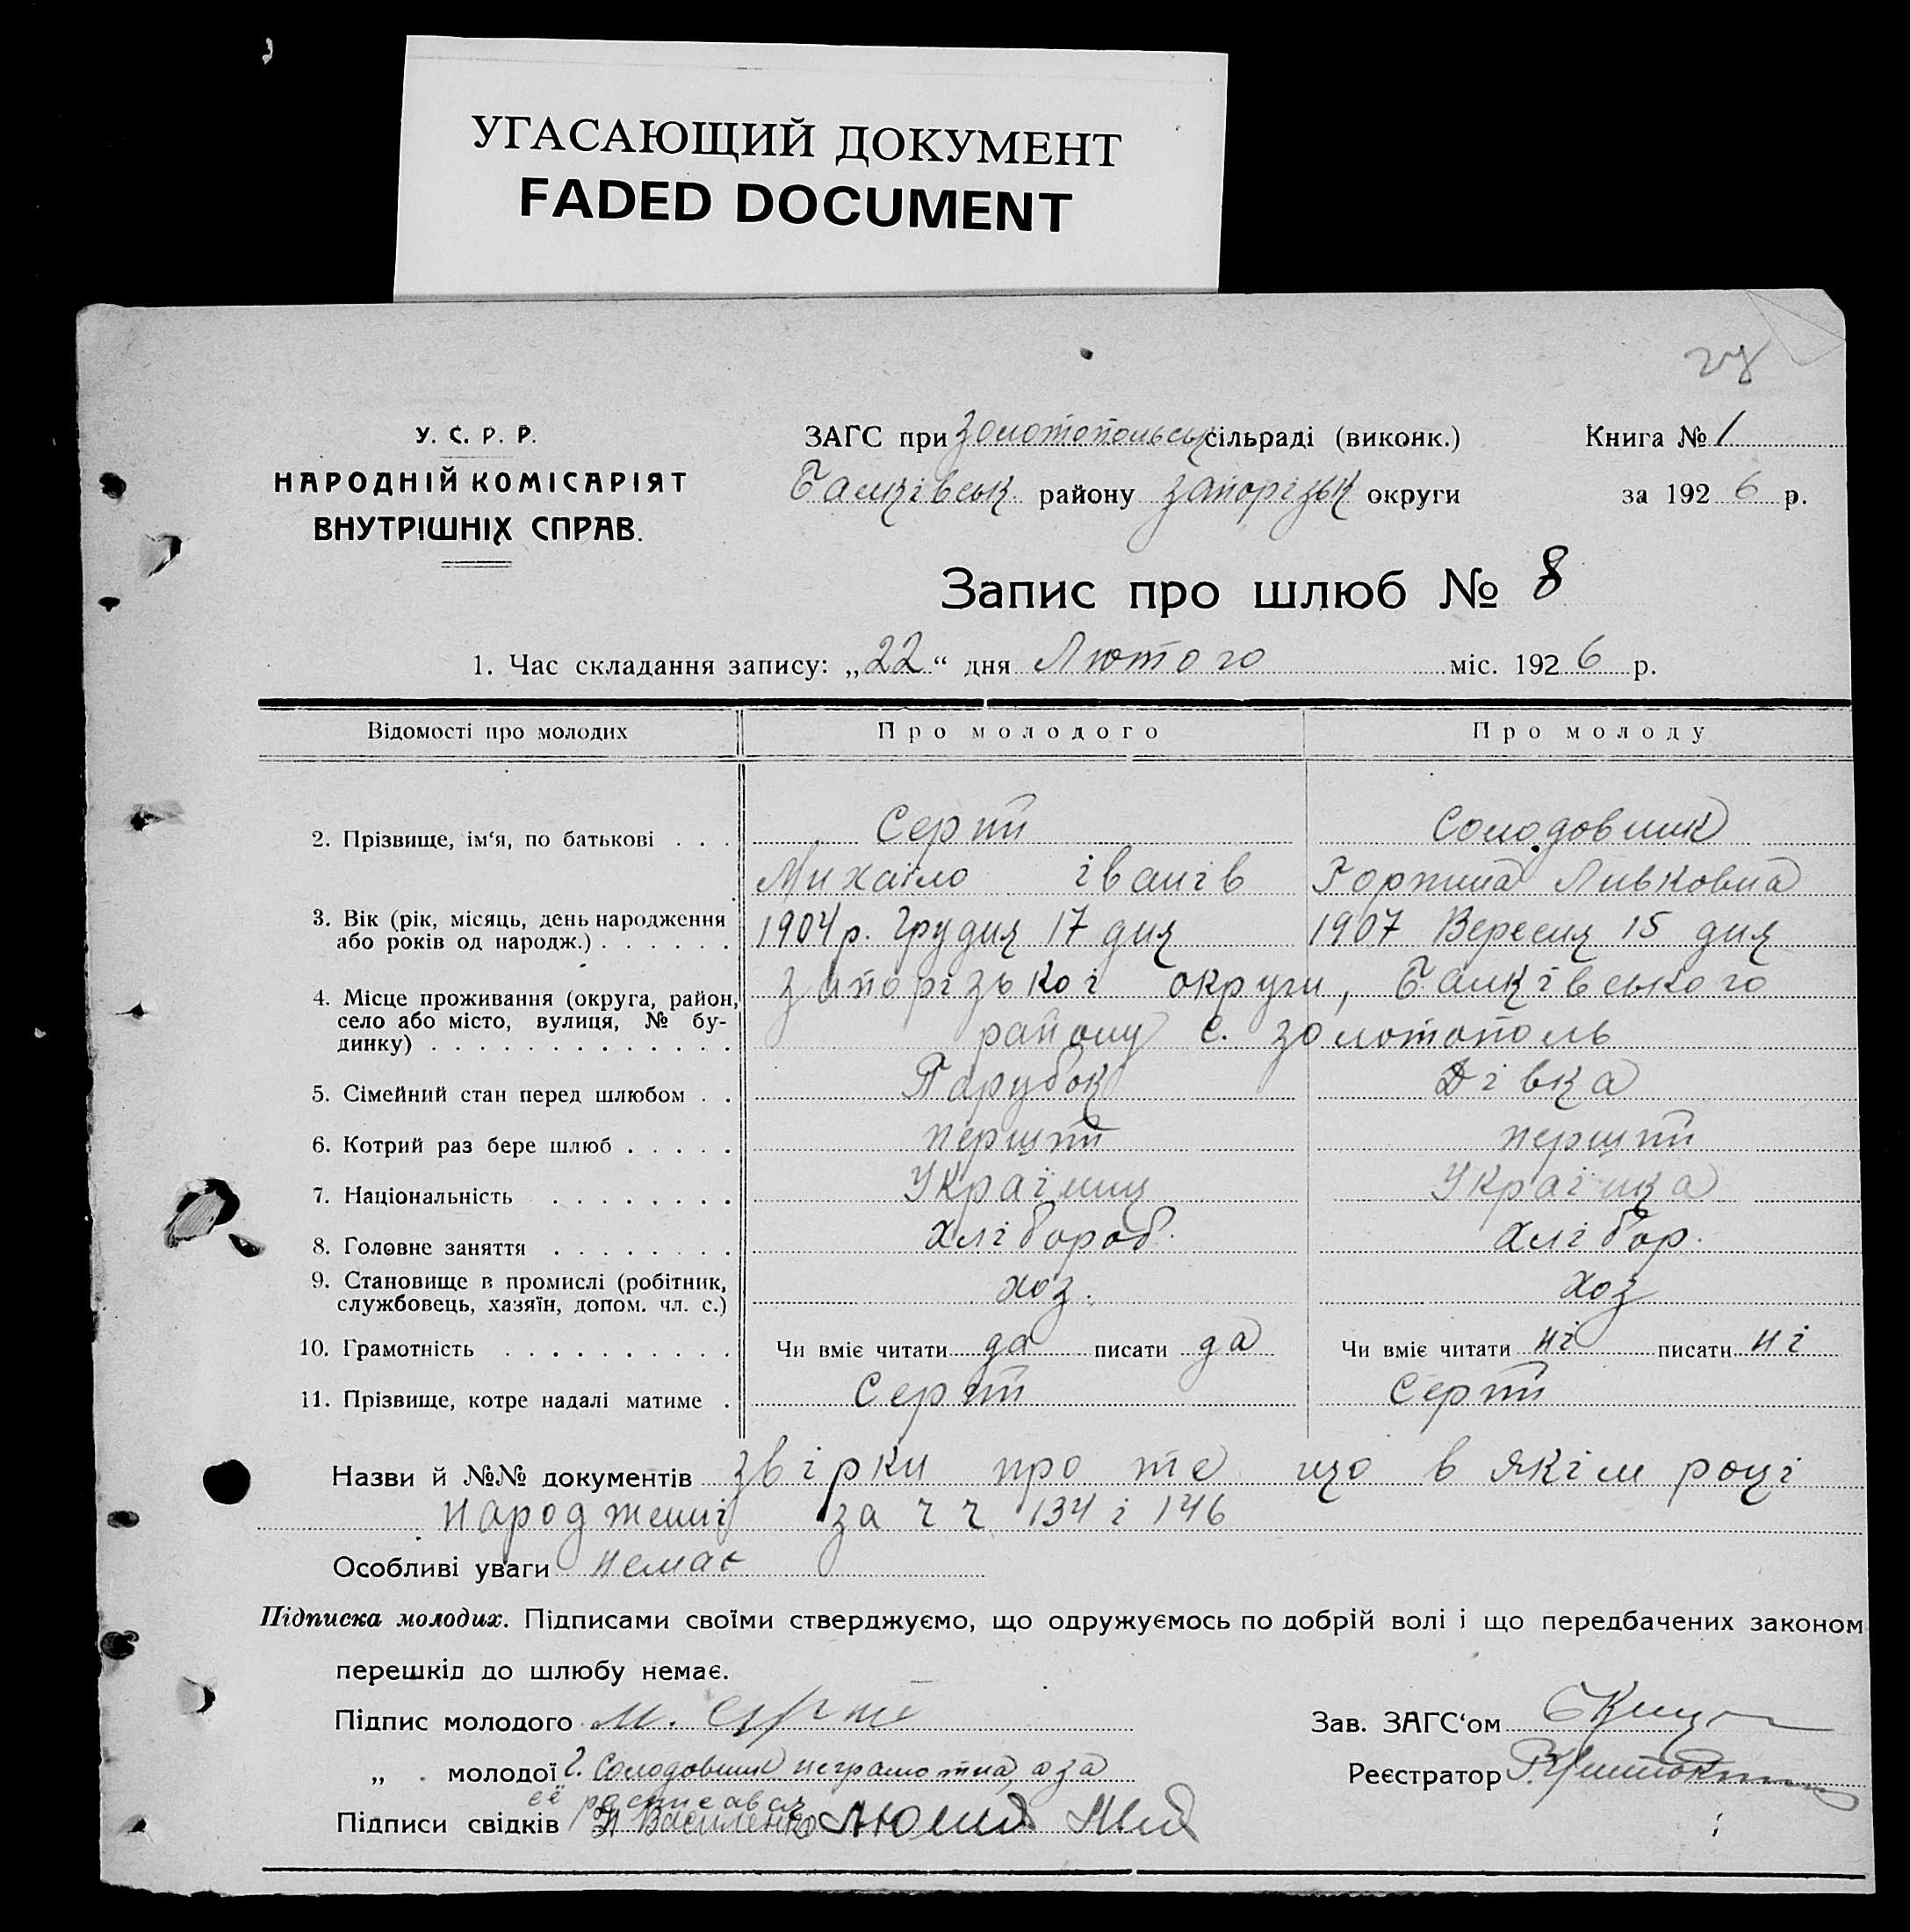 УГАСАЮЩИЙ ДОКУМЕНТ
FADED DOCUMENT
28
У. С. Р. Р.
НАРОДНІЙ КОМІСАРІЯТ
ВНУТРІШНІХ СПРАВ.
ЗАГС при Золотопольськ сільраді (виконк.) Книга № 1
Балківськ. району Запорізьк округи за 1926 р.
Запис про шлюб № 8
1. Час складання запису: „22“ дня Лютого міс. 1926 р.
Відомості про молодих Про молодого Про молоду
2. Прізвище, ім‘я, по батькові . . . Серти Солодовник
Михаіло Іванів Горпина Ливковна
3. Вік (рік, місяць, день народження 1904 р. Грудня 17 дня 1907 Вересня 15 дня
або років од народж.) . . . . . .
4. Місце проживання (округа, район, Запорізької округи, Балківського
село або місто, вулиця, № бу-
динку) . . . . . . . . . . . . . району с. Золотополь
5. Сімейний стан перед шлюбом . . Парубок Дівка
6. Котрий раз бере шлюб . . . . . перший перший
7. Національність . . . . . . . . Українец Українка
8. Головне заняття . . . . . . . . Хлібороб. Хлібор.
9. Становище в промислі (робітник,
службовець, хазяїн, допом. чл. с.) хоз. хоз
10. Грамотність . . . . . . . . . . Чи вміє читати да писати да Чи вміє читати ні писати ні
11. Прізвище, котре надалі матиме . Серти Серти
Назви й №№ документів звірки про те що в якім році
народженні за ч ч 134 і 146
Особливі уваги немає
Підписка молодих. Підписами своїми стверджуємо, що одружуємось по добрій волі і що передбачених законом
перешкід до шлюбу немає.
Підпис молодого М. Зав. ЗАГС‘ом
„ . молодої Г. Солодовник неграмотна, а за Реєстратор
её росписався
Підписи свідків Василенко